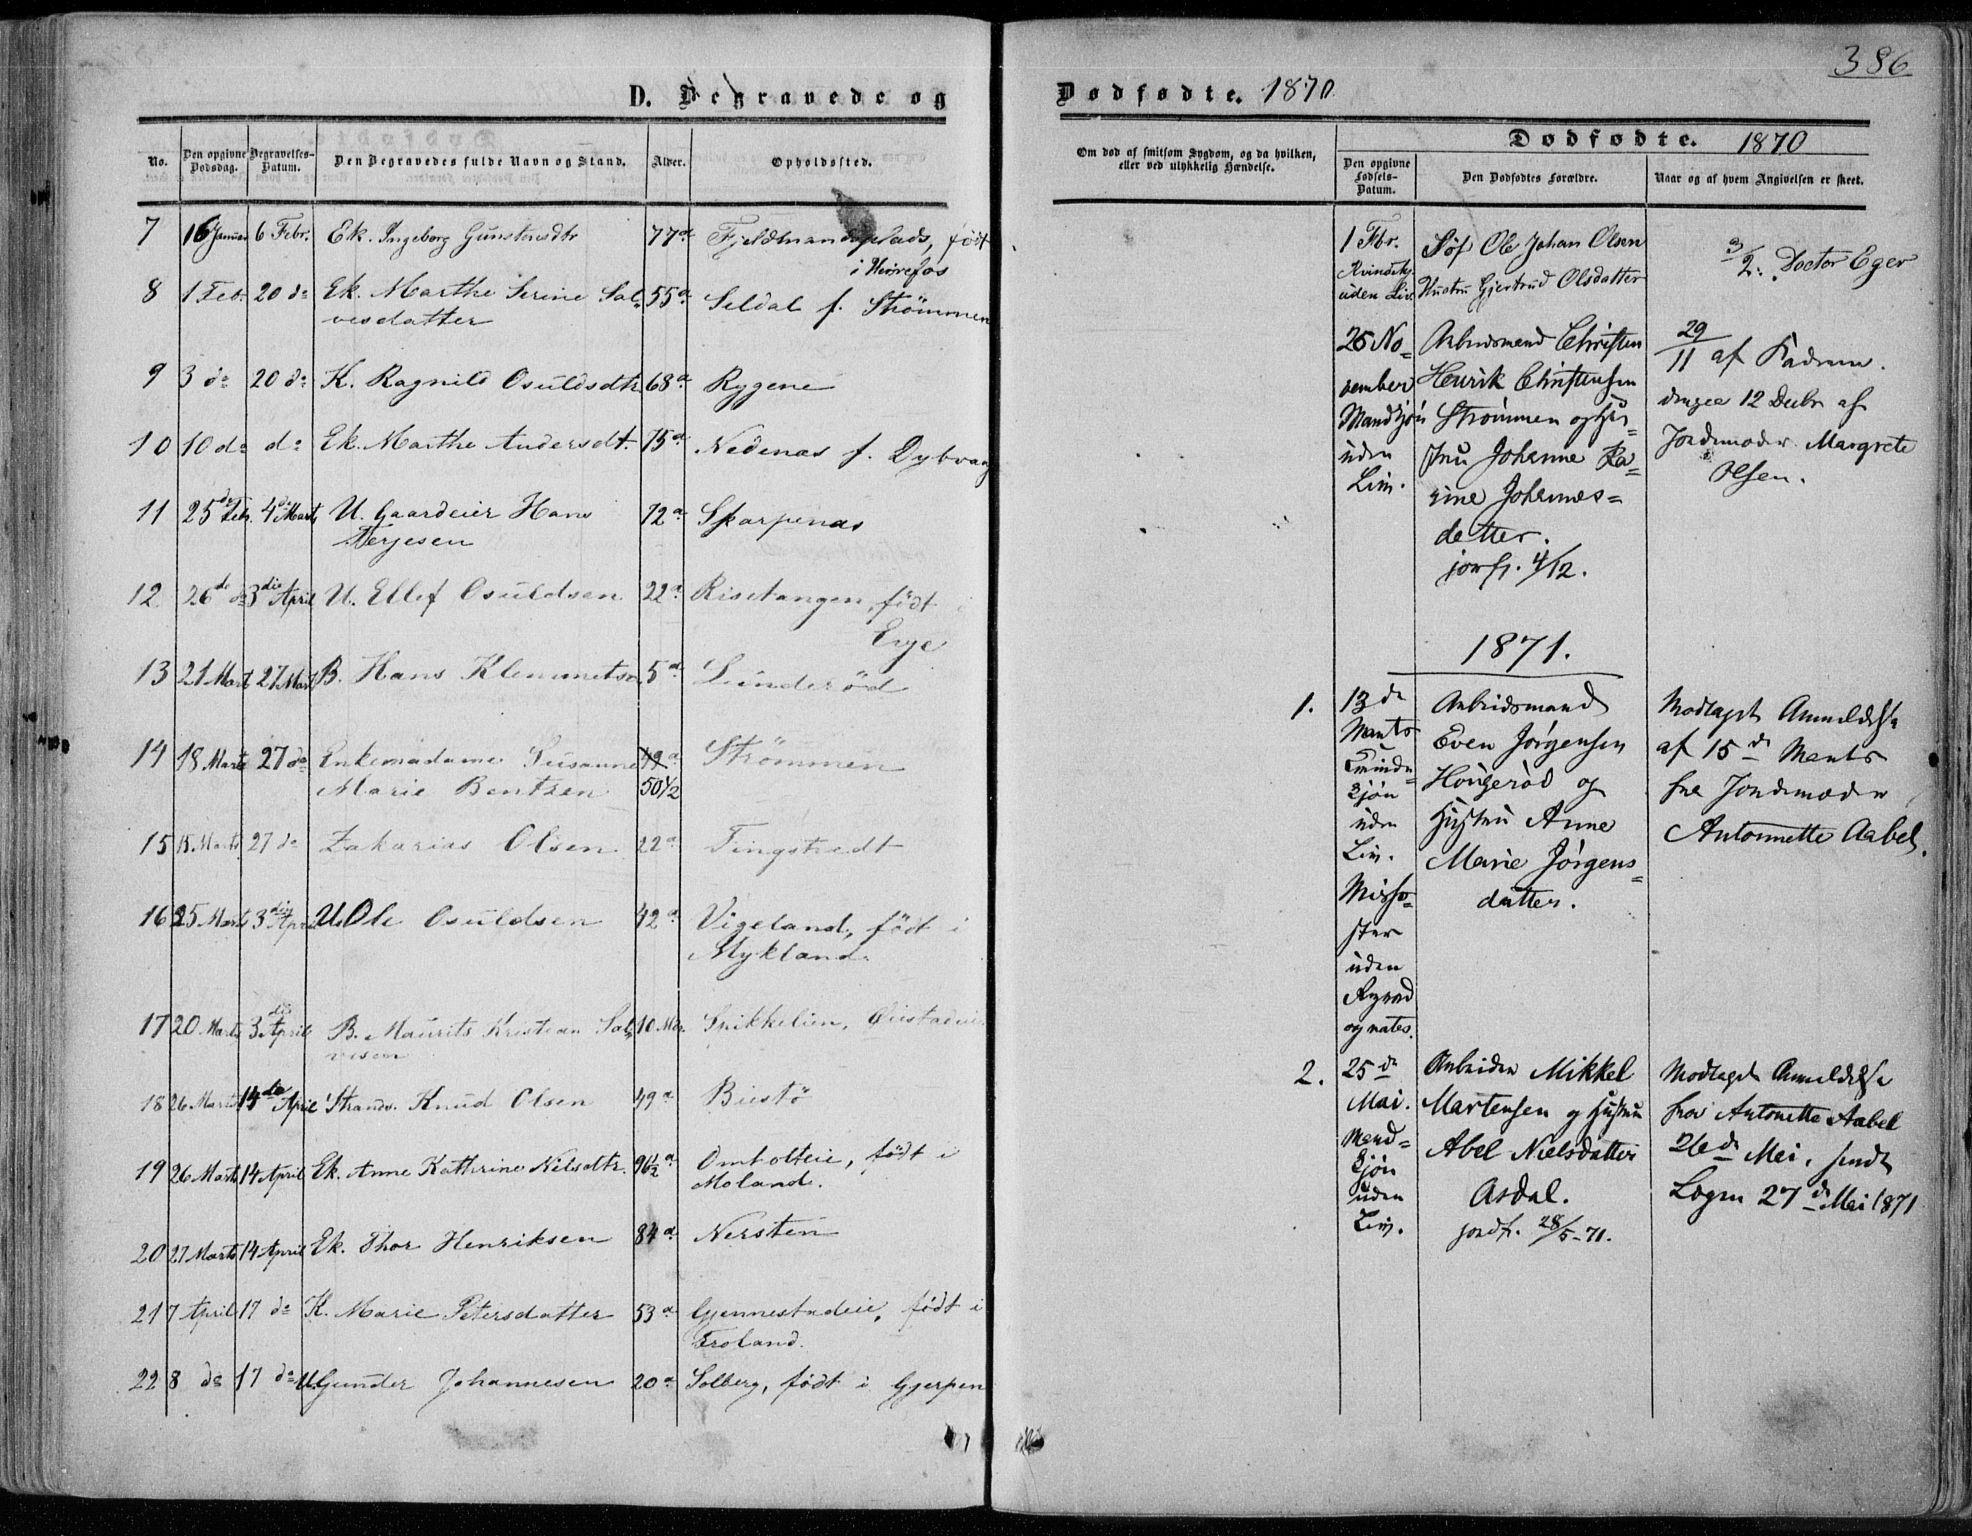 D. Begravede og
No.
Den opgivne Dødsdag.
Begravelses-Datum.
Den Begravedes fulde Navn og Stand.
Alder.
Opholdssted.
7 16 Januar 6 Febr. Ek. Ingeborg Gunstensdtr 77 a Fjeldmandsplads, født
i Herrefos
8 1 Feb. 20 do Ek. Marthe Serine Sal- 55 a Seldal f. Strömmen
vesdatter
9 3 do 20 do K. Ragnild Osuldsdtr 68 a Rygene
10 10 do do Ek. Marthe Andersdt. 75 a Nedenas f. Dybvaag
11 25de Febr. 4de Marts U. Gaardeier Hans 72 a Skarpenas
Terjesen
12 26de do 3die April U. Ellef Osuldsen 22 a Risetangen, født i
Evje
13 21 Marts 27 Marts B. Hans Klemmetsen 5 a Lunderöd
14 18 Marts 27 do Enkemadame Susanne 49 a Strömmen
Marie Bentzen 50 1/2
15 15. Marts 27 do Zakarias Olsen 22 a Tingstvedt
16 25 Marts 3die April U. Ole Osuldsen 42 a Vigeland, födt i
Mykland.
17 20 Marts 3die April B. Maurits Kristian Sal- 10 Mdr. Spikkelien, Øiestadeie
vesen
18 26 Marts 14de April Strands. Knud Olsen 49 a Biestö
19 26 Marts 14 April Ek. Anne Kathrine Nilsdtr. 96 1/2 a Omholteie, födt i
Moland.
20 27 Marts 14 April Ek. Thor Henriksen 84 a Nersten
21 7 April 17 do K. Marie Petersdatter 53 a Gjennestadeie, født i
Froland.
22 8 do 17 do U. Gunder Johannesen 20 a Solberg, født i Gjerpen
386
Dødfødte. 1870
Om død af smitsom Sygdom, og da hvilken,
eller ved ulykkelig Hændelse.
Dødfødte. 1870
Den opgivne Fødsels-Datum.
Den Dødfødtes Forældre.
Naar og af hvem Angivelsen er skeet.
1 Fbr.
Kvindekj.
uden Liv
Søf. Ole Johan Olsen
Hustru Gjertrud Olsdatter
3/2. Doctor Eger
25 No-
vember
Mandkjön
uden
Liv.
Arbeidsmand Christen
Henrik Christensen
Strömmen og Hu-
stru Johanne Ka-
rine Johannes-
datter.
jordf. 4/12.
29/11 af Faderen.
12 Decbr af
Jordemoder Margrete
Olsen.
1871.
1. 13de
Marts
Qvinde-
kjön
uden
Liv.
Misfo-
ster
uden
Rygrad
og nates.
Arbeidsmand
Even Jörgensen
Hougeröd og
Hustru Anne
Marie Jörgens-
datter.
Modtaget Anmeldelse
af 15de Marts
fra Jordemoder
Antonnette Aabel.
2. 25de
Mai.
Mand-
kjön
uden
Liv.
Arbeider Mikkel
Martensen og Hustru
Abel Nielsdatter
Asdal.
jordf. 28/5-71.
Modtaget Anmeldelse
fra Antonette Aabel
26de Mai, sendt
Logen 27de Mai 1871